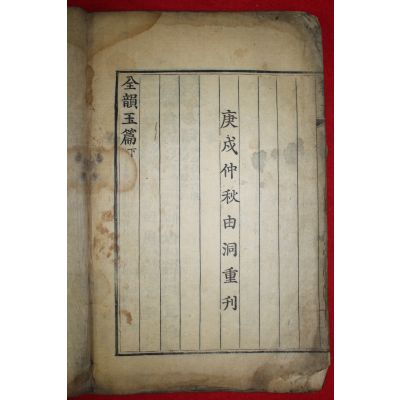 庚戌仲秋由洞重刊
全韻玉篇下